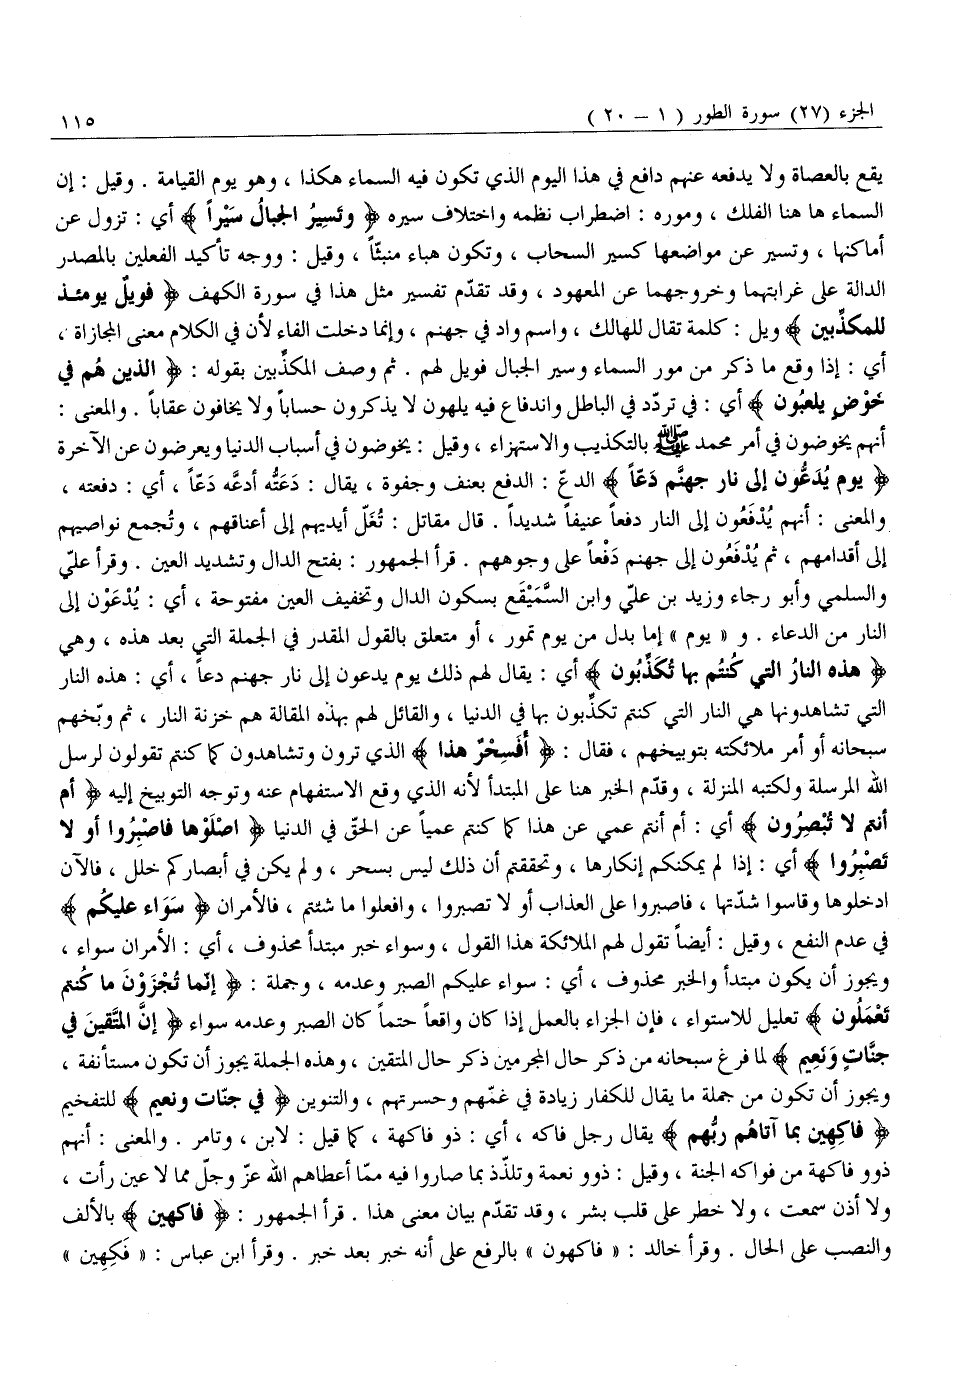 الجزء (٢٧) سورة الطور ( ١ – ٢٠ )
١١٥
يقع بالعصاة ولا يدفعه عنهم دافع في هذا اليوم الذي تكون فيه السماء هكذا ، وهو يوم القيامة . وقيل : إن
السماء ها هنا الفلك ، وموره : اضطراب نظمه واختلاف سيره ﴿ وتَسِيرُ الجبالُ سَيْراً ﴾ أي : تزول عن
أماكنها ، وتسير عن مواضعها كسير السحاب ، وتكون هباء منبثّاً ، وقيل : ووجه تأكيد الفعلين بالمصدر
الدالة على غرابتهما وخروجهما عن المعهود ، وقد تقدّم تفسير مثل هذا في سورة الكهف ﴿ فويلٌ يومئـذ
للمكذِّبين ﴾ ويل : كلمة تقال للهالك ، واسم واد في جهنم ، وإنما دخلت الفاء لأن في الكلام معنى المجازاة ،
أي : إذا وقع ما ذكر من مور السماء وسير الجبال فويل لهم . ثم وصف المكذِّبين بقوله : ﴿ الذين هُم في
خَوْضٍ يلعبُون ﴾ أي : في تردّد في الباطل واندفاع فيه يلهون لا يذكرون حساباً ولا يخافون عقاباً . والمعنى :
أنهم يخوضون في أمر محمد ﷺ بالتكذيب والاستهزاء ، وقيل : يخوضون في أسباب الدنيا ويعرضون عن الآخرة
﴿ يوم يُدَعُّون إلى نار جهنَّم دَعّاً ﴾ الدعّ : الدفع بعنف وجفوة ، يقال : دَعَتُّه أدعَّه دَعّاً ، أي : دفعته ،
والمعنى : أنهم يُدْفَعُون إلى النار دفعاً عنيفاً شديداً . قال مقاتل : تُغَلّ أيديهم إلى أعناقهم ، وتُجمع نواصيهم
إلى أقدامهم ، ثم يُدْفَعُون إلى جهنم دَفْعاً على وجوههم . قرأ الجمهور : بفتح الدال وتشديد العين . وقرأ عليّ
والسلمي وأبو رجاء وزيد بن عليّ وابن السَّمَيْقَع بسكون الدال وتخفيف العين مفتوحة ، أي : يُدْعَوْن إلى
النار من الدعاء . و « يوم » إما بدل من يوم تمور ، أو متعلق بالقول المقدر في الجملة التي بعد هذه ، وهي
﴿ هذه النارُ التي كُنتُم بها تُكَذِّبُون ﴾ أي : يقال لهم ذلك يوم يدعون إلى نار جهنم دعاً ، أي : هذه النار
التي تشاهدونها هي النار التي كنتم تكذِّبون بها في الدنيا ، والقائل لهم بهذه المقالة هم خزنة النار ، ثم وبّخهم
سبحانه أو أمر ملائكته بتوبيخهم ، فقال : ﴿ أَفَسِحْرٌ هذا ﴾ الذي ترون وتشاهدون كما كنتم تقولون لرسل
الله المرسلة ولكتبه المنزلة ، وقدّم الخبر هنا على المبتدأ لأنه الذي وقع الاستفهام عنه وتوجه التوبيخ إليه ﴿ أم
أنتم لا تُبْصِرُون ﴾ أي : أم أنتم عمي عن هذا كما كنتم عمياً عن الحقّ في الدنيا ﴿ اصْلَوْها فاصْبِرُوا أو لا
تَصْبِرُوا ﴾ أي : إذا لم يمكنكم إنكارها ، وتحققتم أن ذلك ليس بسحر ، و لم يكن في أبصاركم خلل ، فالآن
ادخلوها وقاسوا شدّتها ، فاصبروا على العذاب أو لا تصبروا ، وافعلوا ما شئتم ، فالأمران ﴿ سَوَاء عليكُم ﴾
في عدم النفع ، وقيل : أيضاً تقول لهم الملائكة هذا القول ، وسواء خبر مبتدأ محذوف ، أي : الأمران سواء ،
ويجوز أن يكون مبتدأ والخبر محذوف ، أي : سواء عليكم الصبر وعدمه ، وجملة : ﴿ إنّما تُجْزَوْنَ ما كُنتم
تَعْمَلُون ﴾ تعليل للاستواء ، فإن الجزاء بالعمل إذا كان واقعاً حتماً كان الصبر وعدمه سواء ﴿ إنَّ المتَّقينَ في
جنَّاتٍ وَنَعِيم ﴾ لما فرغ سبحانه من ذكر حال المجرمين ذكر حال المتقين ، وهذه الجملة يجوز أن تكون مستأنفة ،
ويجوز أن تكون من جملة ما يقال للكفار زيادة في غمّهم وحسرتهم ، والتنوين ﴿ في جنّات ونعيم ﴾ للتفخيم
﴿ فاكِهِين بما آتاهُم ربُّهم ﴾ يقال رجل فاكه ، أي : ذو فاكهة ، كما قيل : لابن ، وتامر . والمعنى : أنهم
ذوو فاكهة من فواكه الجنة ، وقيل : ذوو نعمة وتلذّذ بما صاروا فيه ممّا أعطاهم الله عزّ وجلّ مما لا عين رأت ،
ولا أذن سمعت ، ولا خطر على قلب بشر ، وقد تقدّم بيان معنى هذا . قرأ الجمهور : ﴿ فاكهين ﴾ بالألف
والنصب على الحال . وقرأ خالد : « فاكهون » بالرفع على أنه خبر بعد خبر . وقرأ ابن عباس : « فَكِهِين »